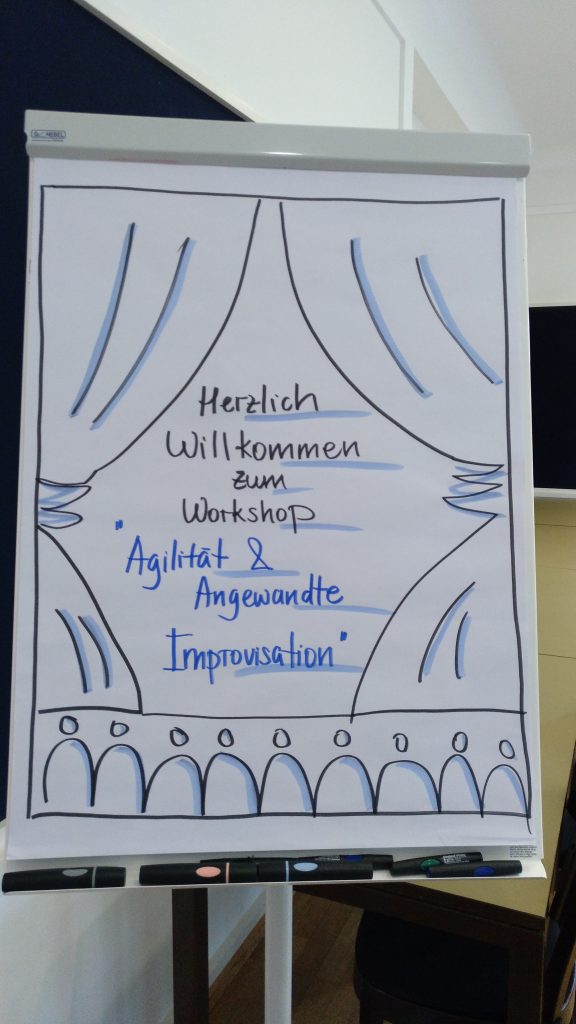 Herzlich
Willkommen
zum
Workshop
"Agilität &
Angewandte
Improvisation"